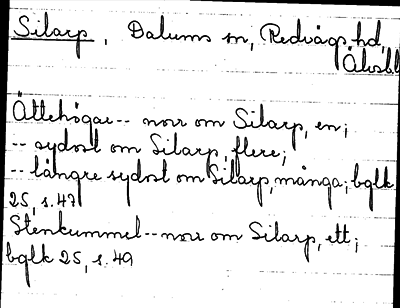 Silarp, Dalums sn, Redvägs hd,
Älvsbl
Ättehögar -- norr om Silarp, en;
-- sydost om Silarp, flere;
-- längre sydost om Silarp, många; bglk
25, s. 47
Stenkummel -- norr om Silarp, ett;
bglk 25, s. 49